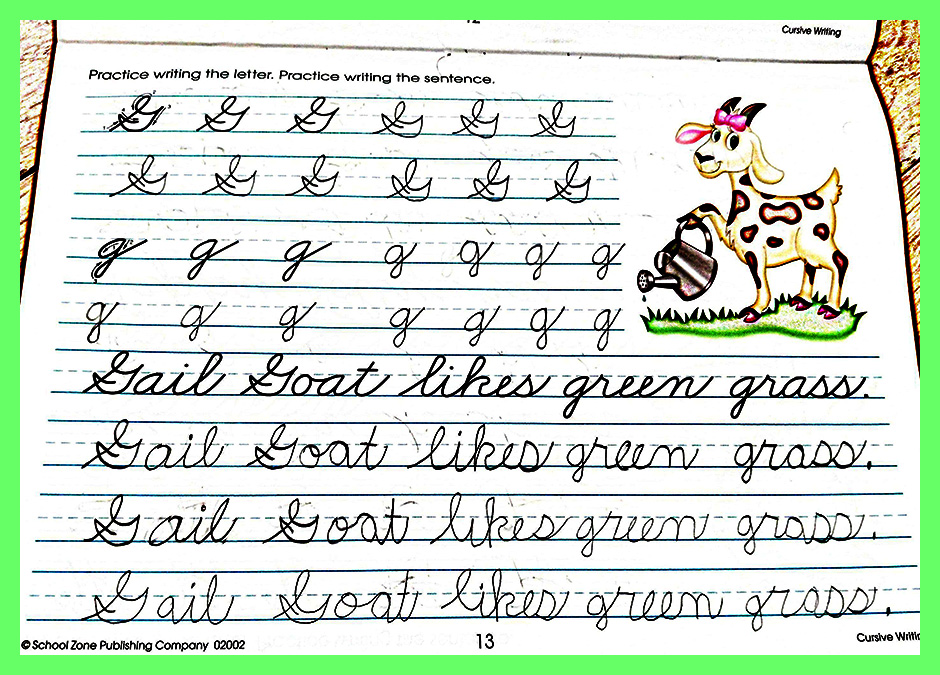 12
Cursive Writing
Practice writing the letter. Practice writing the sentence.
G G G G G G
G G G G G G
g g g g g g g
g g g g g g g
Gail Goat likes green grass.
Gail Goat likes green grass.
Gail Goat likes green grass.
Gail Goat likes green grass.
© School Zone Publishing Company 02002
13
Cursive Writin